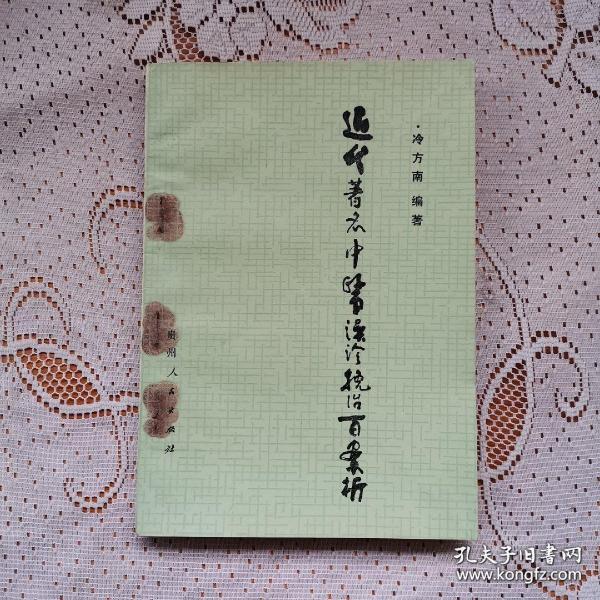 ·冷方南 编著
近代著名中醫误治挽治百案析
貴州人民出版社
孔夫子旧書网
www.kongfz.com